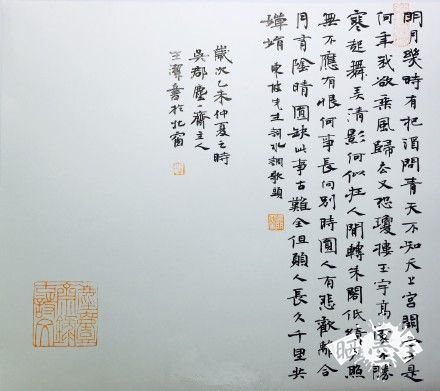 明月幾時有把酒問青天不知天上宮闕今夕是
何年我欲乘風歸去又恐瓊樓玉宇高處不勝
寒起舞弄清影何似在人間轉朱閣低綺戶照
無不應有恨何事長向別時圓人有悲歡離合
月有陰晴圓缺此事古難全但願人長久千里共
嬋娟 東坡先生詞水調歌頭
歲次乙未仲夏之時
吳郡塵一齋主人
書於北窗